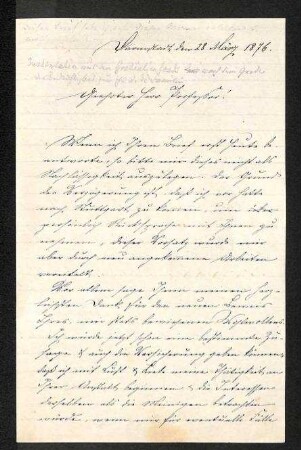 Darmstadt, den 28. März 1876.
Geehrter Herr Professor!
Wenn ich Ihren Brief erst heute be-
antworte, so bitte mir dieses nicht als
Nachlässigkeit auszulegen. Der Grund
der Verzögerung ist, daß ich vor hatte
nach Stuttgart zu kommen, um
persönlich Rücksprache mit Ihnen zu
nehmen, dieser Vorsatz wurde mir
aber durch neu angekommene Arbeiten
vereitelt.
Vor allem sage Ihnen meinen herz-
lichsten Dank für den neuen Beweis
Ihres mir stets bewiesenen Wohlwollens.
Ich würde jetzt schon eine bestimmte Zu-
sage & auch die Versicherung geben können,
daß ich mit Lust & Liebe meine Thätigkeit an
Ihrer Anstalt beginnen & die Interessen
derselben als die Meinigen betrachten
würde, wenn mir für eventuelle Fälle